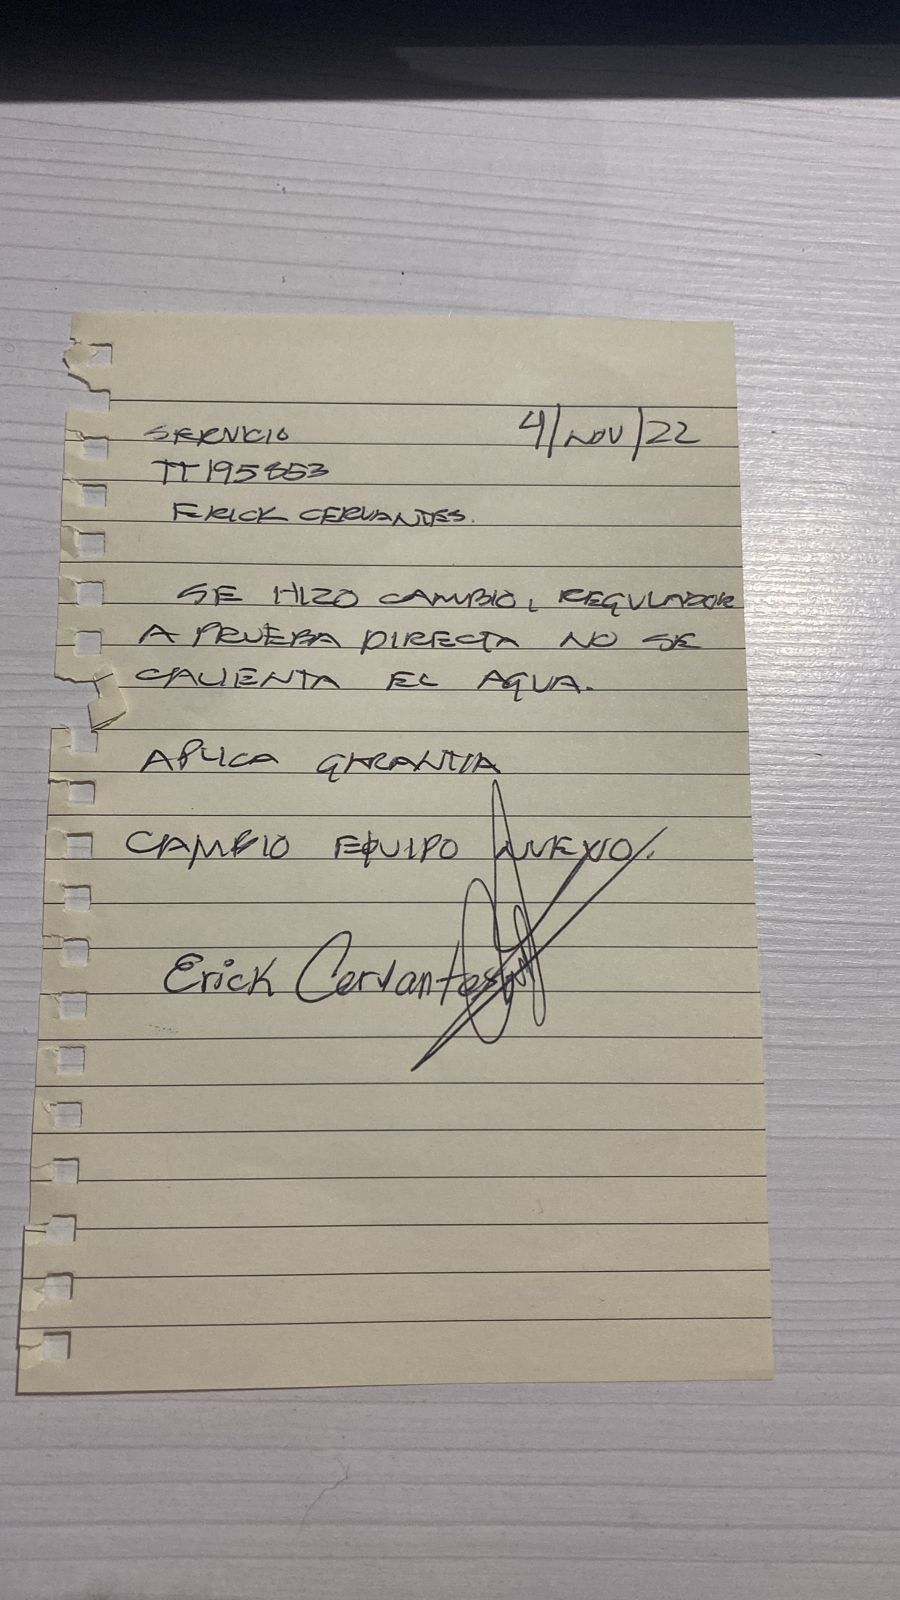 SERVICIO 4/NOV/22
TT195853
ERICK CERVANTES.
SE HIZO CAMBIO, REGULADOR
A PRUEBA DIRECTA NO SE
CALIENTA EL AGUA.
APLICA GARANTIA
CAMBIO EQUIPO
Erick Cervantes